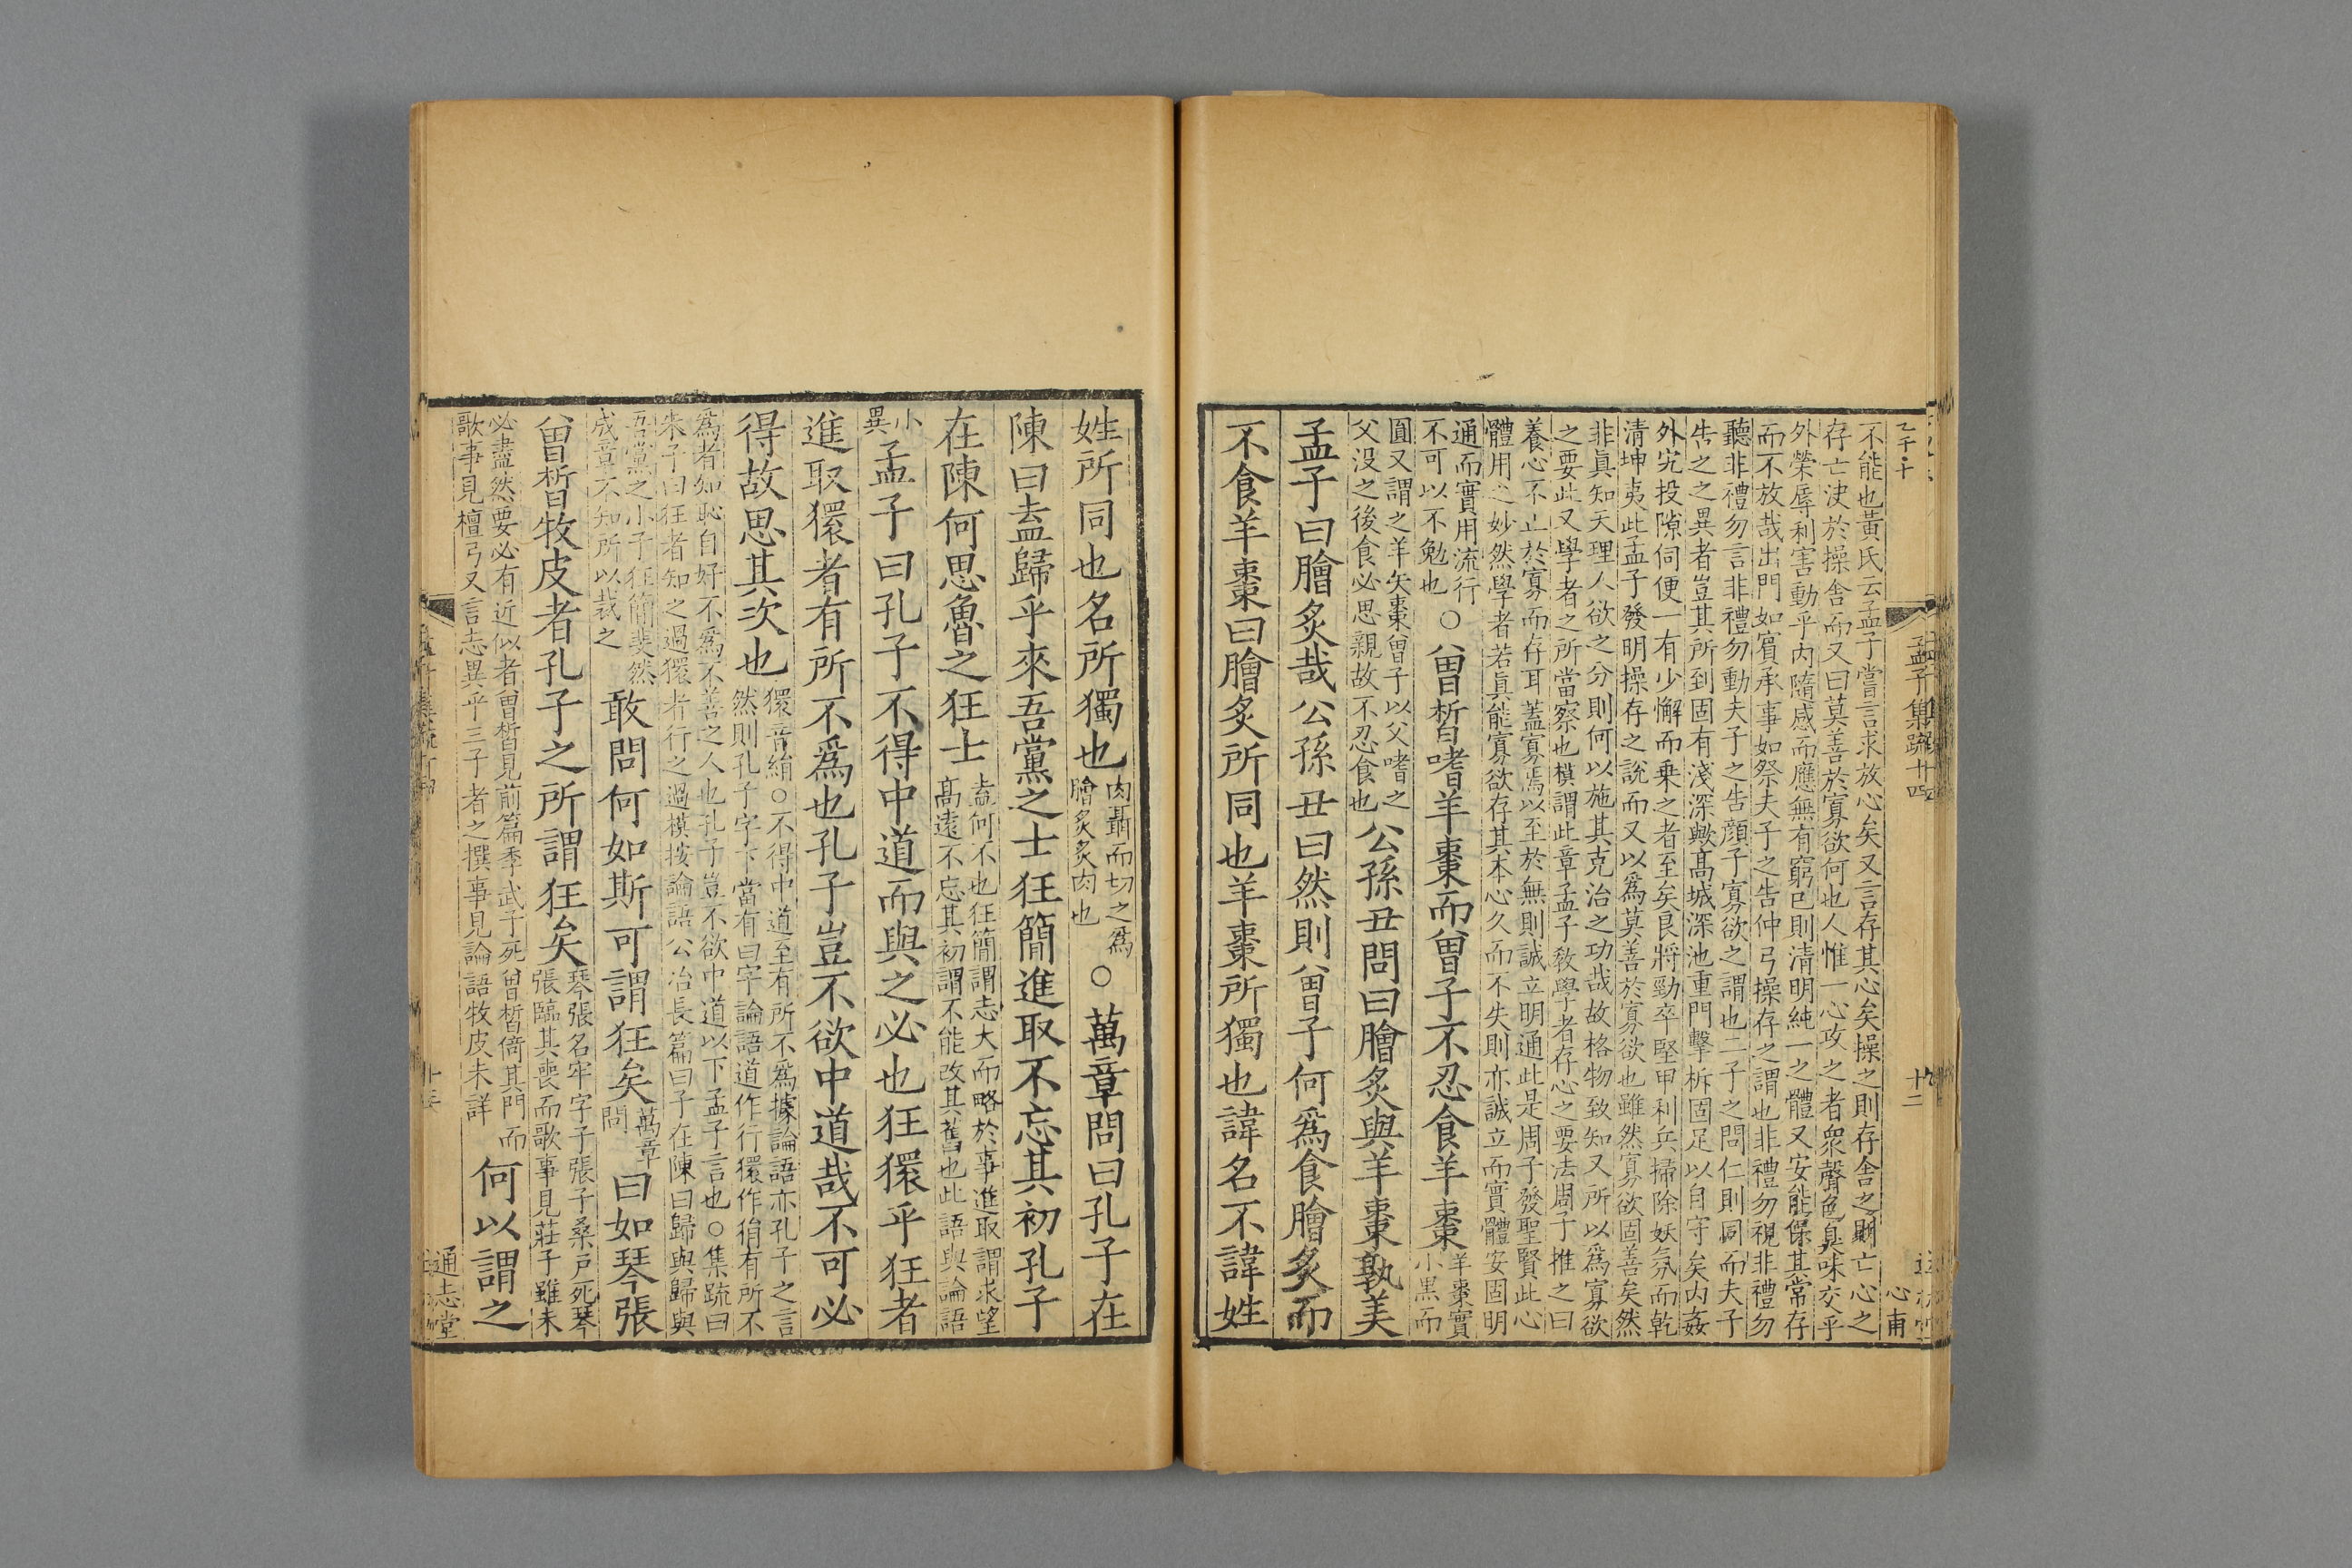 不能也黃氏云孟子嘗言求放心矣又言存其心矣操之則存舍之則亡心之
存亡決於操舍而又曰莫善於寡欲何也人惟一心攻之者衆聲色臭味交乎
外榮辱利害動乎内隨感而應無有窮已則清明純一之體又安能保其常存
而不放哉出門如賓承事如祭夫子之告仲弓操存之謂也非禮勿視非禮勿
聽非禮勿言非禮勿動夫子之告顔子寡欲之謂也二子之問仁則同而夫子
告之之異者豈其所到固有淺深歟髙城深池重門擊柝固足以自守矣内姦
外宄投隙伺便一有少懈而乗之者至矣良將勁卒堅甲利兵掃除妖氛而乾
清坤夷此孟子發明操存之說而又以爲莫善於寡欲也雖然寡欲固善矣然
非真知天理人欲之分則何以施其克治之功哉故格物致知又所以爲寡欲
之要此又學者之所當察也模謂此章孟子敎學者存心之要法周子推之曰
養心不止於寡而存耳蓋寡焉以至於無則誠立明通此是周子發聖賢此心
體用之妙然學者若真能寡欲存其本心久而不失則亦誠立而實體安固明
通而實用流行
不可以不勉也
○曾晳嗜羊棗而曾子不忍食羊棗
羊棗實
小黒而
圓又謂之羊矢棗曾子以父嗜之
父没之後食必思親故不忍食也
公孫丑問曰膾炙與羊棗孰美
孟子曰膾炙哉公孫丑曰然則曾子何爲食膾炙而
不食羊棗曰膾炙所同也羊棗所獨也諱名不諱姓
孟子集疏十四
十二
心甫
姓所同也名所獨也
肉聶而切之爲
膾炙炙肉也
○萬章問曰孔子在
陳曰盍歸乎來吾黨之士狂簡進取不忘其初孔子
在陳何思魯之狂士
盍何不也狂簡謂志大而略於事進取謂求望
髙遠不忘其初謂不能改其舊也此語與論語
小
異
孟子曰孔子不得中道而與之必也狂獧乎狂者
進取獧者有所不爲也孔子豈不欲中道哉不可必
得故思其次也
獧音絹○不得中道至有所不爲據論語亦孔子之言
然則孔子字下當有曰字論語道作行獧作狷有所不
爲者知恥自好不爲不善之人也孔子豈不欲中道以下孟子言也○集疏曰
朱子曰狂者知之過獧者行之過模按論語公冶長篇曰子在陳曰歸與歸與
吾黨之小子狂簡斐然
成章不知所以裁之
敢問何如斯可謂狂矣
萬章
問
曰如琴張
曾晳牧皮者孔子之所謂狂矣
琴張名牢字子張子桑戸死琴
張臨其喪而歌事見莊子雖未
必盡然要必有近似者曾晳見前篇季武子死曾晳倚其門而
歌事見檀弓又言志異乎三子者之撰事見論語牧皮未詳
何以謂之
通志堂